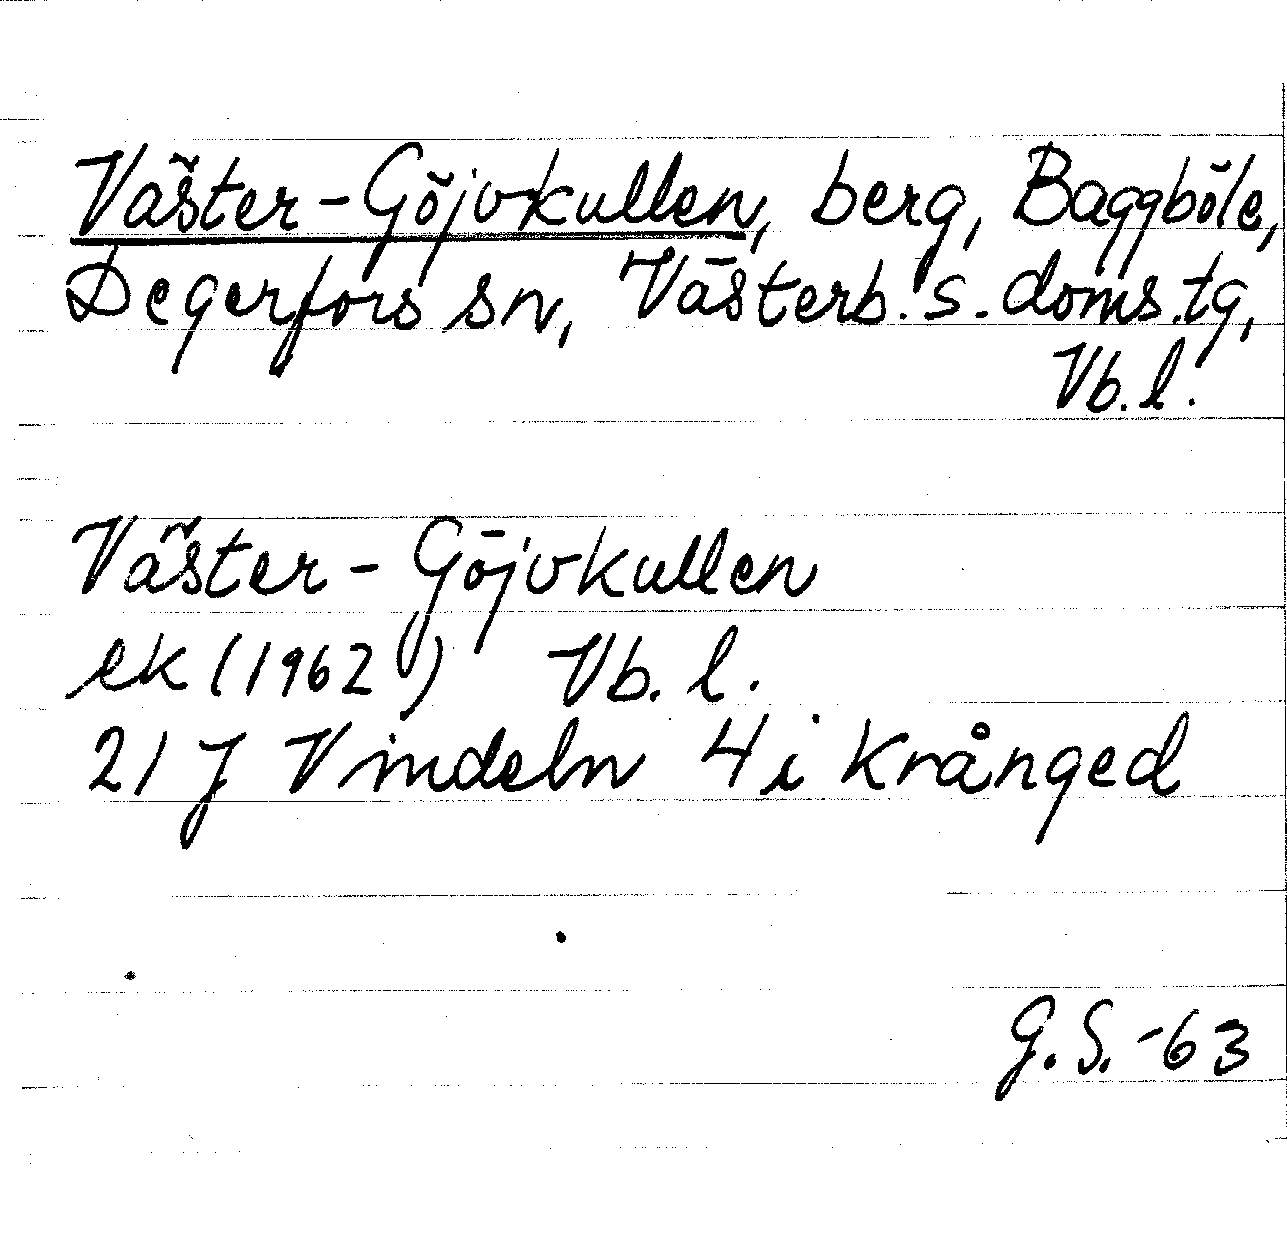 Väster-Göjvkullen, berg, Baggböle,
Degerfors sn, Västerb. s. doms. tg,
Vb. l.
Väster-Göjvkullen
ek (1962) Vb. l.
21 J Vindeln 4 i Krånged
G. S. -63